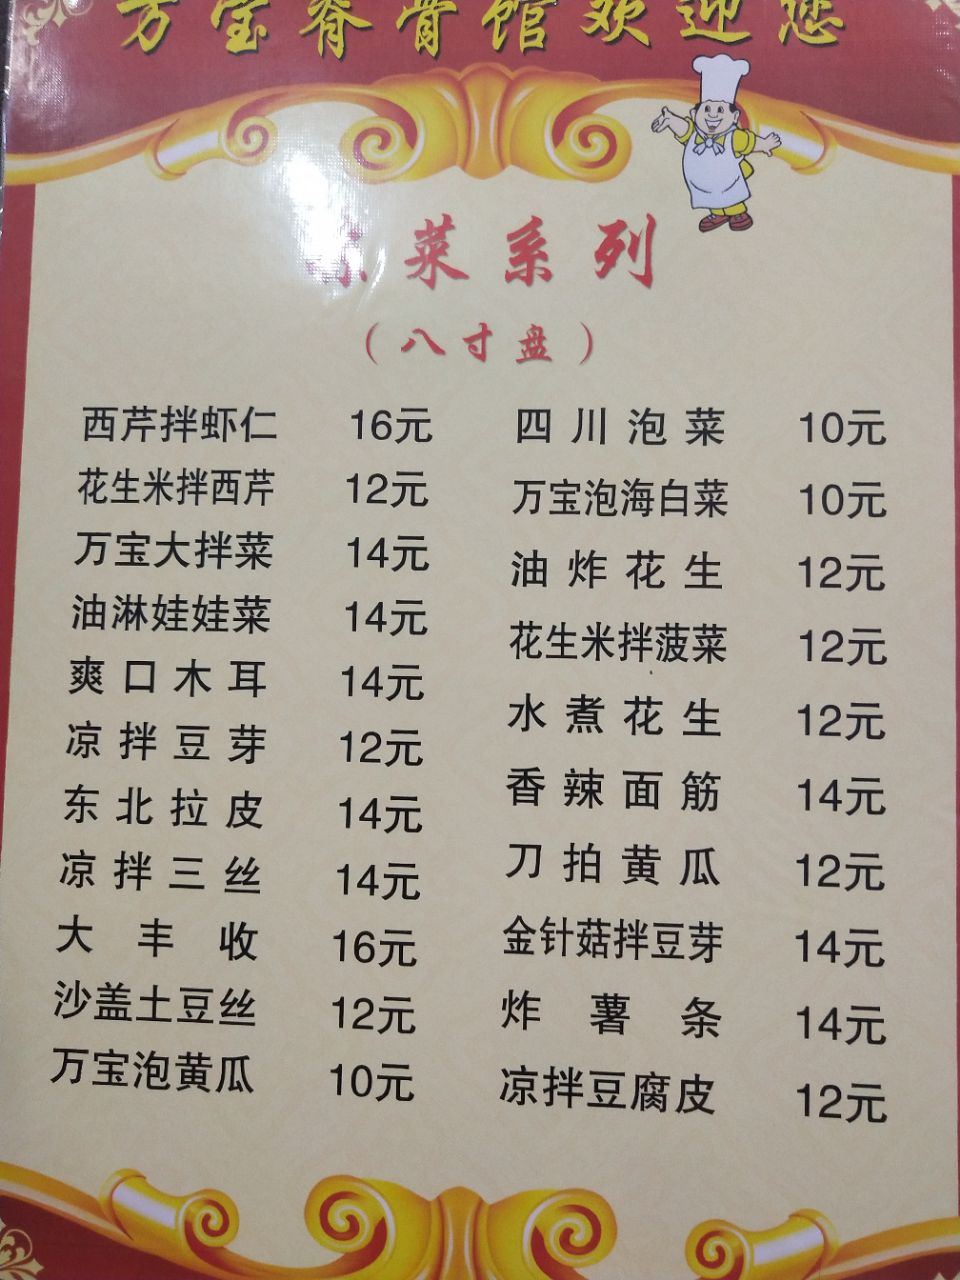 万宝脊骨馆欢迎您
凉菜系列
（八寸盘）
西芹拌虾仁 16元
花生米拌西芹 12元
万宝大拌菜 14元
油淋娃娃菜 14元
爽口木耳 14元
凉拌豆芽 12元
东北拉皮 14元
凉拌三丝 14元
大丰收 16元
沙盖土豆丝 12元
万宝泡黄瓜 10元
四川泡菜 10元
万宝泡海白菜 10元
油炸花生 12元
花生米拌菠菜 12元
水煮花生 12元
香辣面筋 14元
刀拍黄瓜 12元
金针菇拌豆芽 14元
炸薯条 14元
凉拌豆腐皮 12元